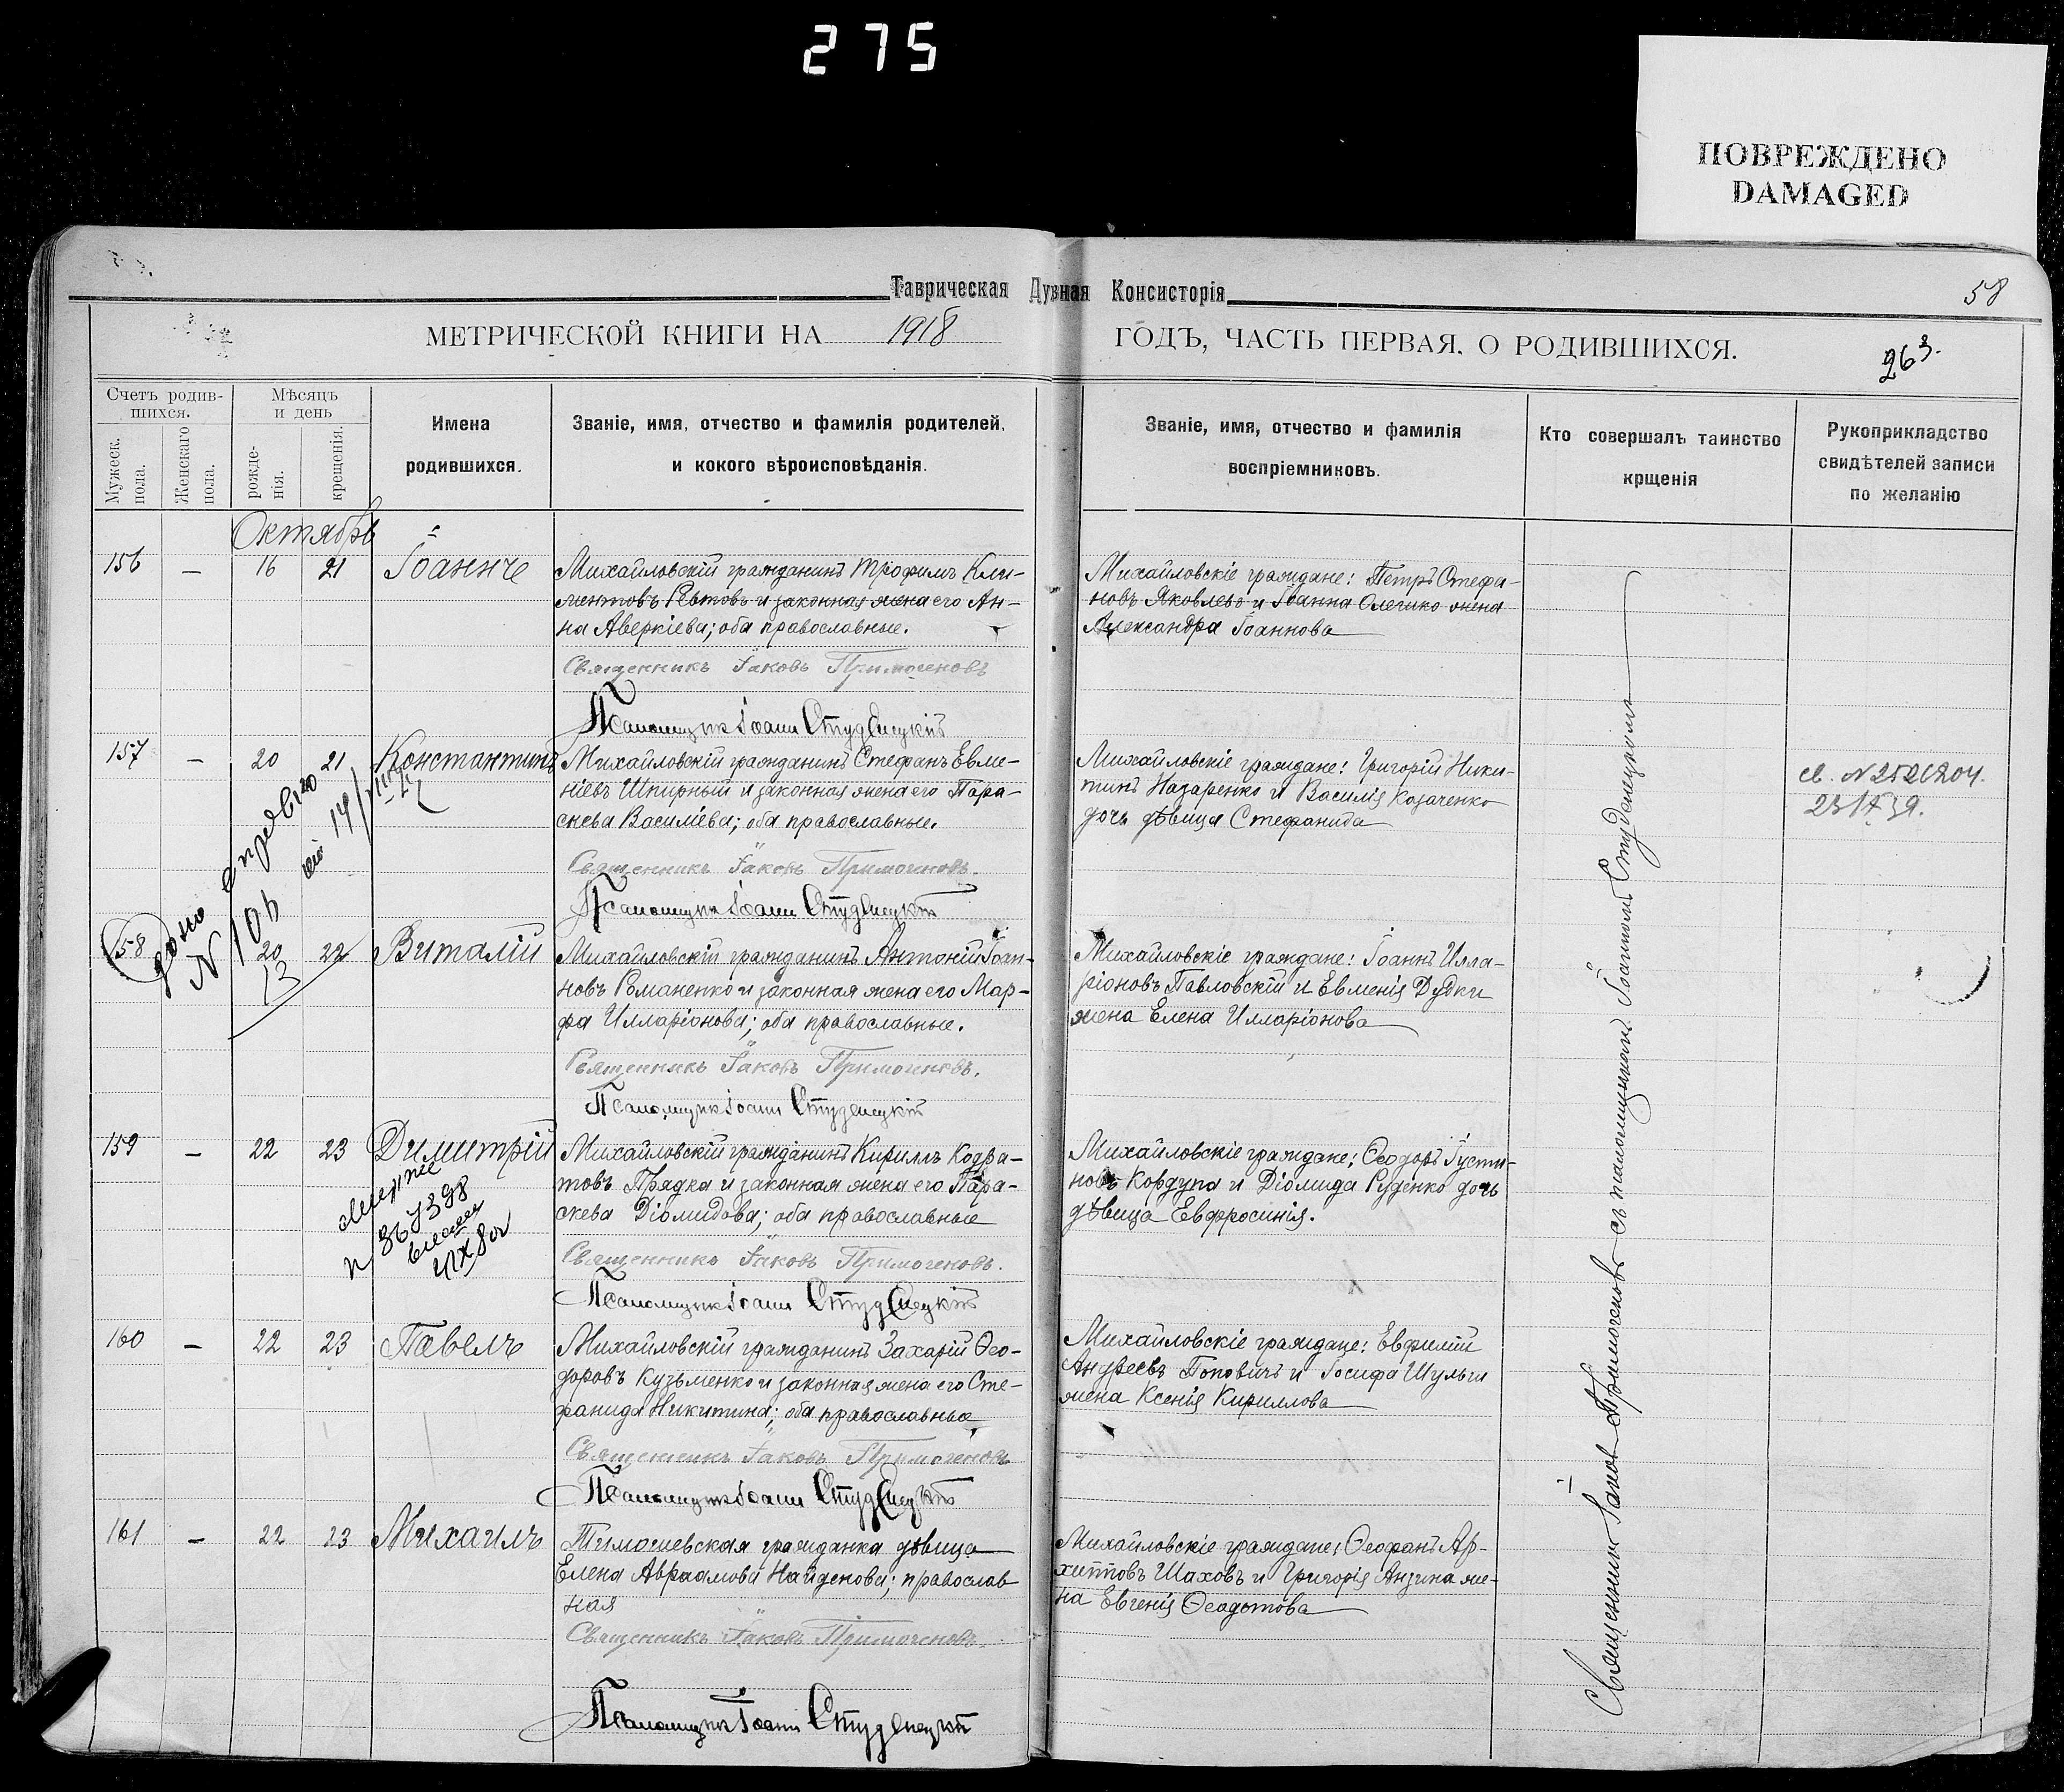 275
ПОВРЕЖДЕНО
DAMAGED
Таврическая Духная Консисторія
58
МЕТРИЧЕСКОЙ КНИГИ НА 1918 ГОДЪ, ЧАСТЬ ПЕРВАЯ. О РОДИВШИХСЯ.
263.
Счетъ родив-
шихся.
Мужеск.
пола.
Женскаго
пола.
Мѣсяцъ
и день
рожде-
нія.
крещенія.
Имена
родившихся.
Званіе, имя, отчество и фамилія родителей,
и кокого вѣроисповѣданія.
Званіе, имя, отчество и фамилія
воспріемниковъ.
Кто совершалъ таинство
крщенія
Рукоприкладство
свидѣтелей записи
по желанію
Октябрь
156 — 16 21 Іоаннъ
Михайловскій гражданинъ Трофимъ Кли-
ментовъ Ревтовъ и законная жена его Ан-
на Аверкіева; оба православные.
Священникъ Іаковъ Примогеновъ
Псаломщикъ Іоаннъ Студенецкій
Михайловскіе граждане: Петръ Стефа-
новъ Яковлевъ и Іоанна Олейнко жена
Александра Іоаннова
157 — 20 21 Константинъ
Михайловскій гражданинъ Стефанъ Евме-
ніевъ Шпирный и законная жена его Пара-
скева Василіева; оба православные.
Священникъ Іаковъ Примогеновъ.
Псаломщикъ Іоаннъ Студенецкій
Михайловскіе граждане: Григорій Ники-
тинъ Назаренко и Василія Казаченко
дочь дѣвица Стефанида
св. N 2521204.
158 20 22 Виталій
дано
N 106
13
Михайловскій гражданинъ Антоній Іоан-
новъ Романенко и законная жена его Мар-
фа Илларіонова; оба православные.
Священникъ Іаковъ Примогеновъ.
Псаломщикъ Іоаннъ Студенецкій
Михайловскіе граждане: Іоаннъ Илла-
ріоновъ Павловскій и Евменія Дудки
жена Елена Илларіонова
159 — 22 23 Димитрій
N 367398
Михайловскій гражданинъ Кириллъ Кодра-
товъ Прядка и законная жена его Пара-
скева Діомидова; оба православные
Священникъ Іаковъ Примогеновъ.
Псаломщикъ Іоаннъ Студенецкій
Михайловскіе граждане: Ѳеодоръ Іусти-
новъ Кордупа и Діомида Руденко дочь
дѣвица Евфросинія.
160 — 22 23 Павелъ
Михайловскій гражданинъ Захарій Ѳео-
доровъ Кузьменко и законная жена его Сте-
фанида Никитина; оба православные
Священникъ Іаковъ Примогеновъ
Псаломщикъ Іоаннъ Студенецкій
Михайловскіе граждане: Евфимій
Андреевъ Поповичъ и Іосифа Шульги
жена Ксенія Кириллова
161 — 22 23 Михаилъ
Тимошевская гражданка дѣвица
Елена Авраамова Найденова; православ
ная
Священникъ Іаковъ Примогеновъ.
Псаломщикъ Іоаннъ Студенецкій
Михайловскіе граждане: Ѳеофанъ Ар-
хипповъ Шаховъ и Григорія Анзина же-
на Евгенія Ѳеодотова
Священникъ Іаковъ Примогеновъ съ псаломщикомъ Іоанномъ Студенецкимъ